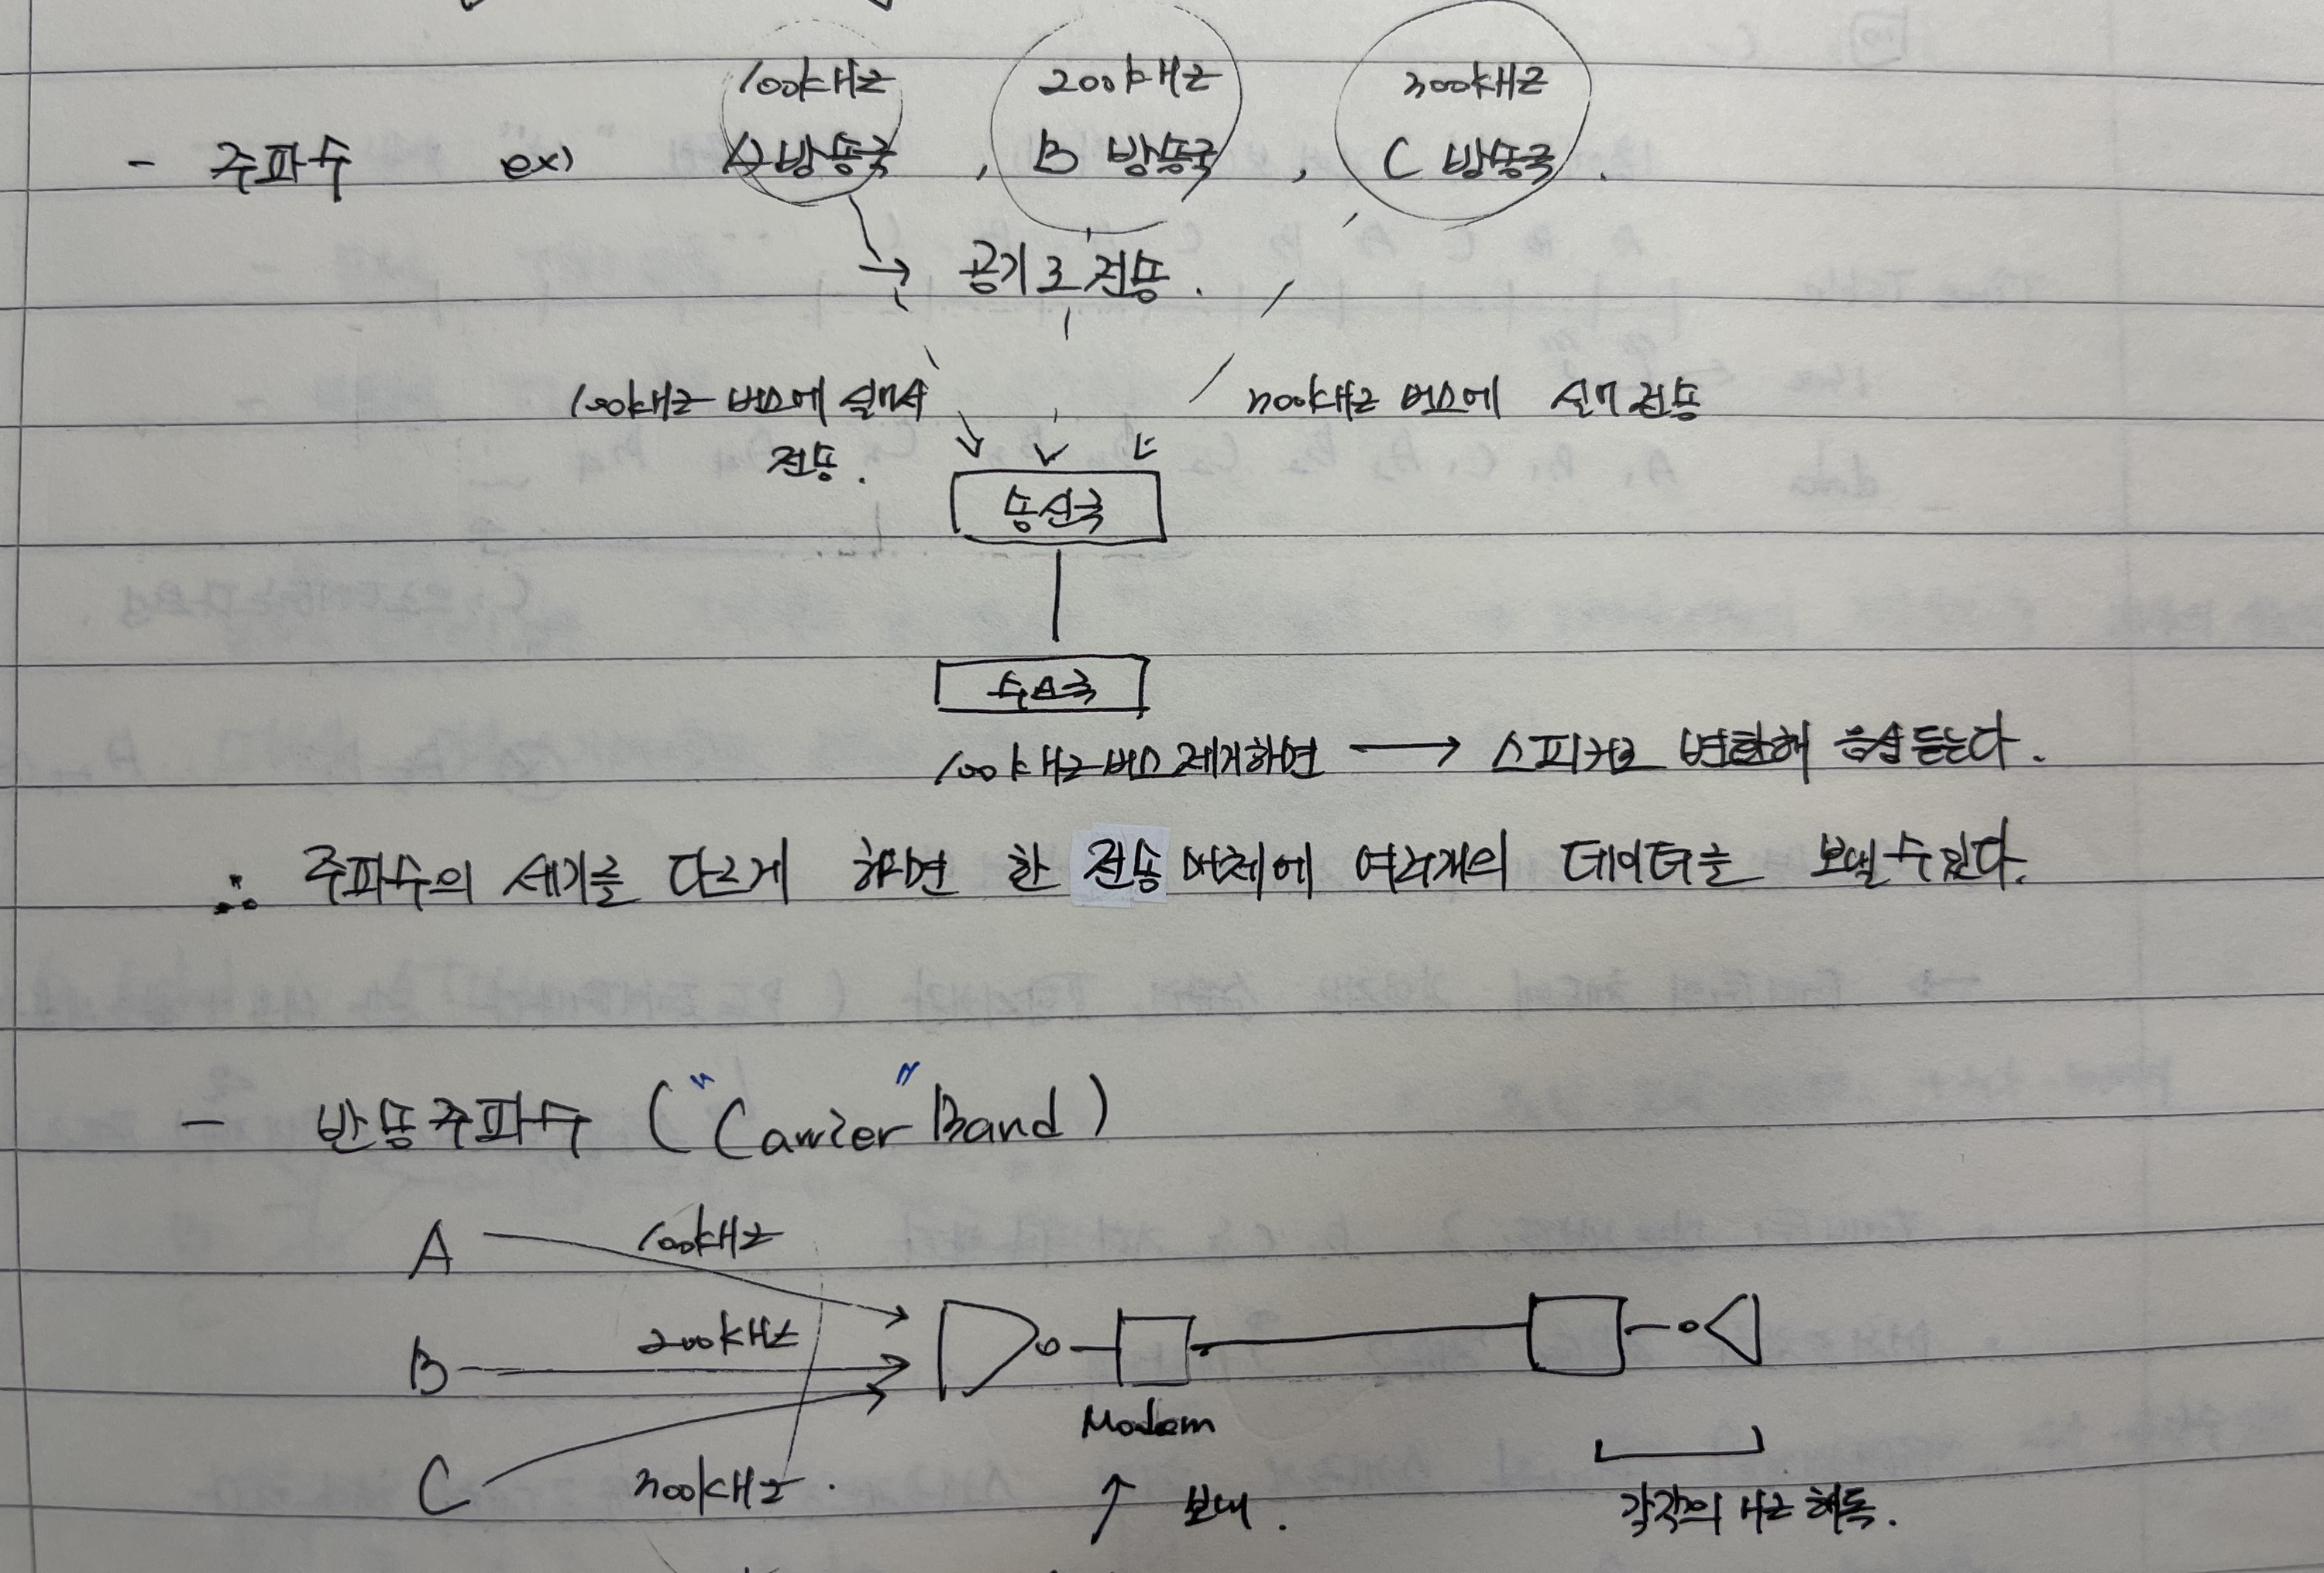 100kHz 200kHz 300kHz
- 주파수 ex) A방송국, B 방송국, C 방송국.
공기로 전송.
100kHz 버스에 실어서 300kHz 버스에 실어 전송
전송.
송신국
수신국
100kHz 버스 제거하면 → 스피커로 변환해 음성듣는다.
∴ 주파수의 세기를 다르게 하면 한 전송매체에 여러개의 데이터를 보낼 수 있다.
- 반송주파수 ("Carrier" Band)
A 100kHz
B 200kHz
C 300kHz.
Modem
↑ 보내.
각각의 Hz 해독.